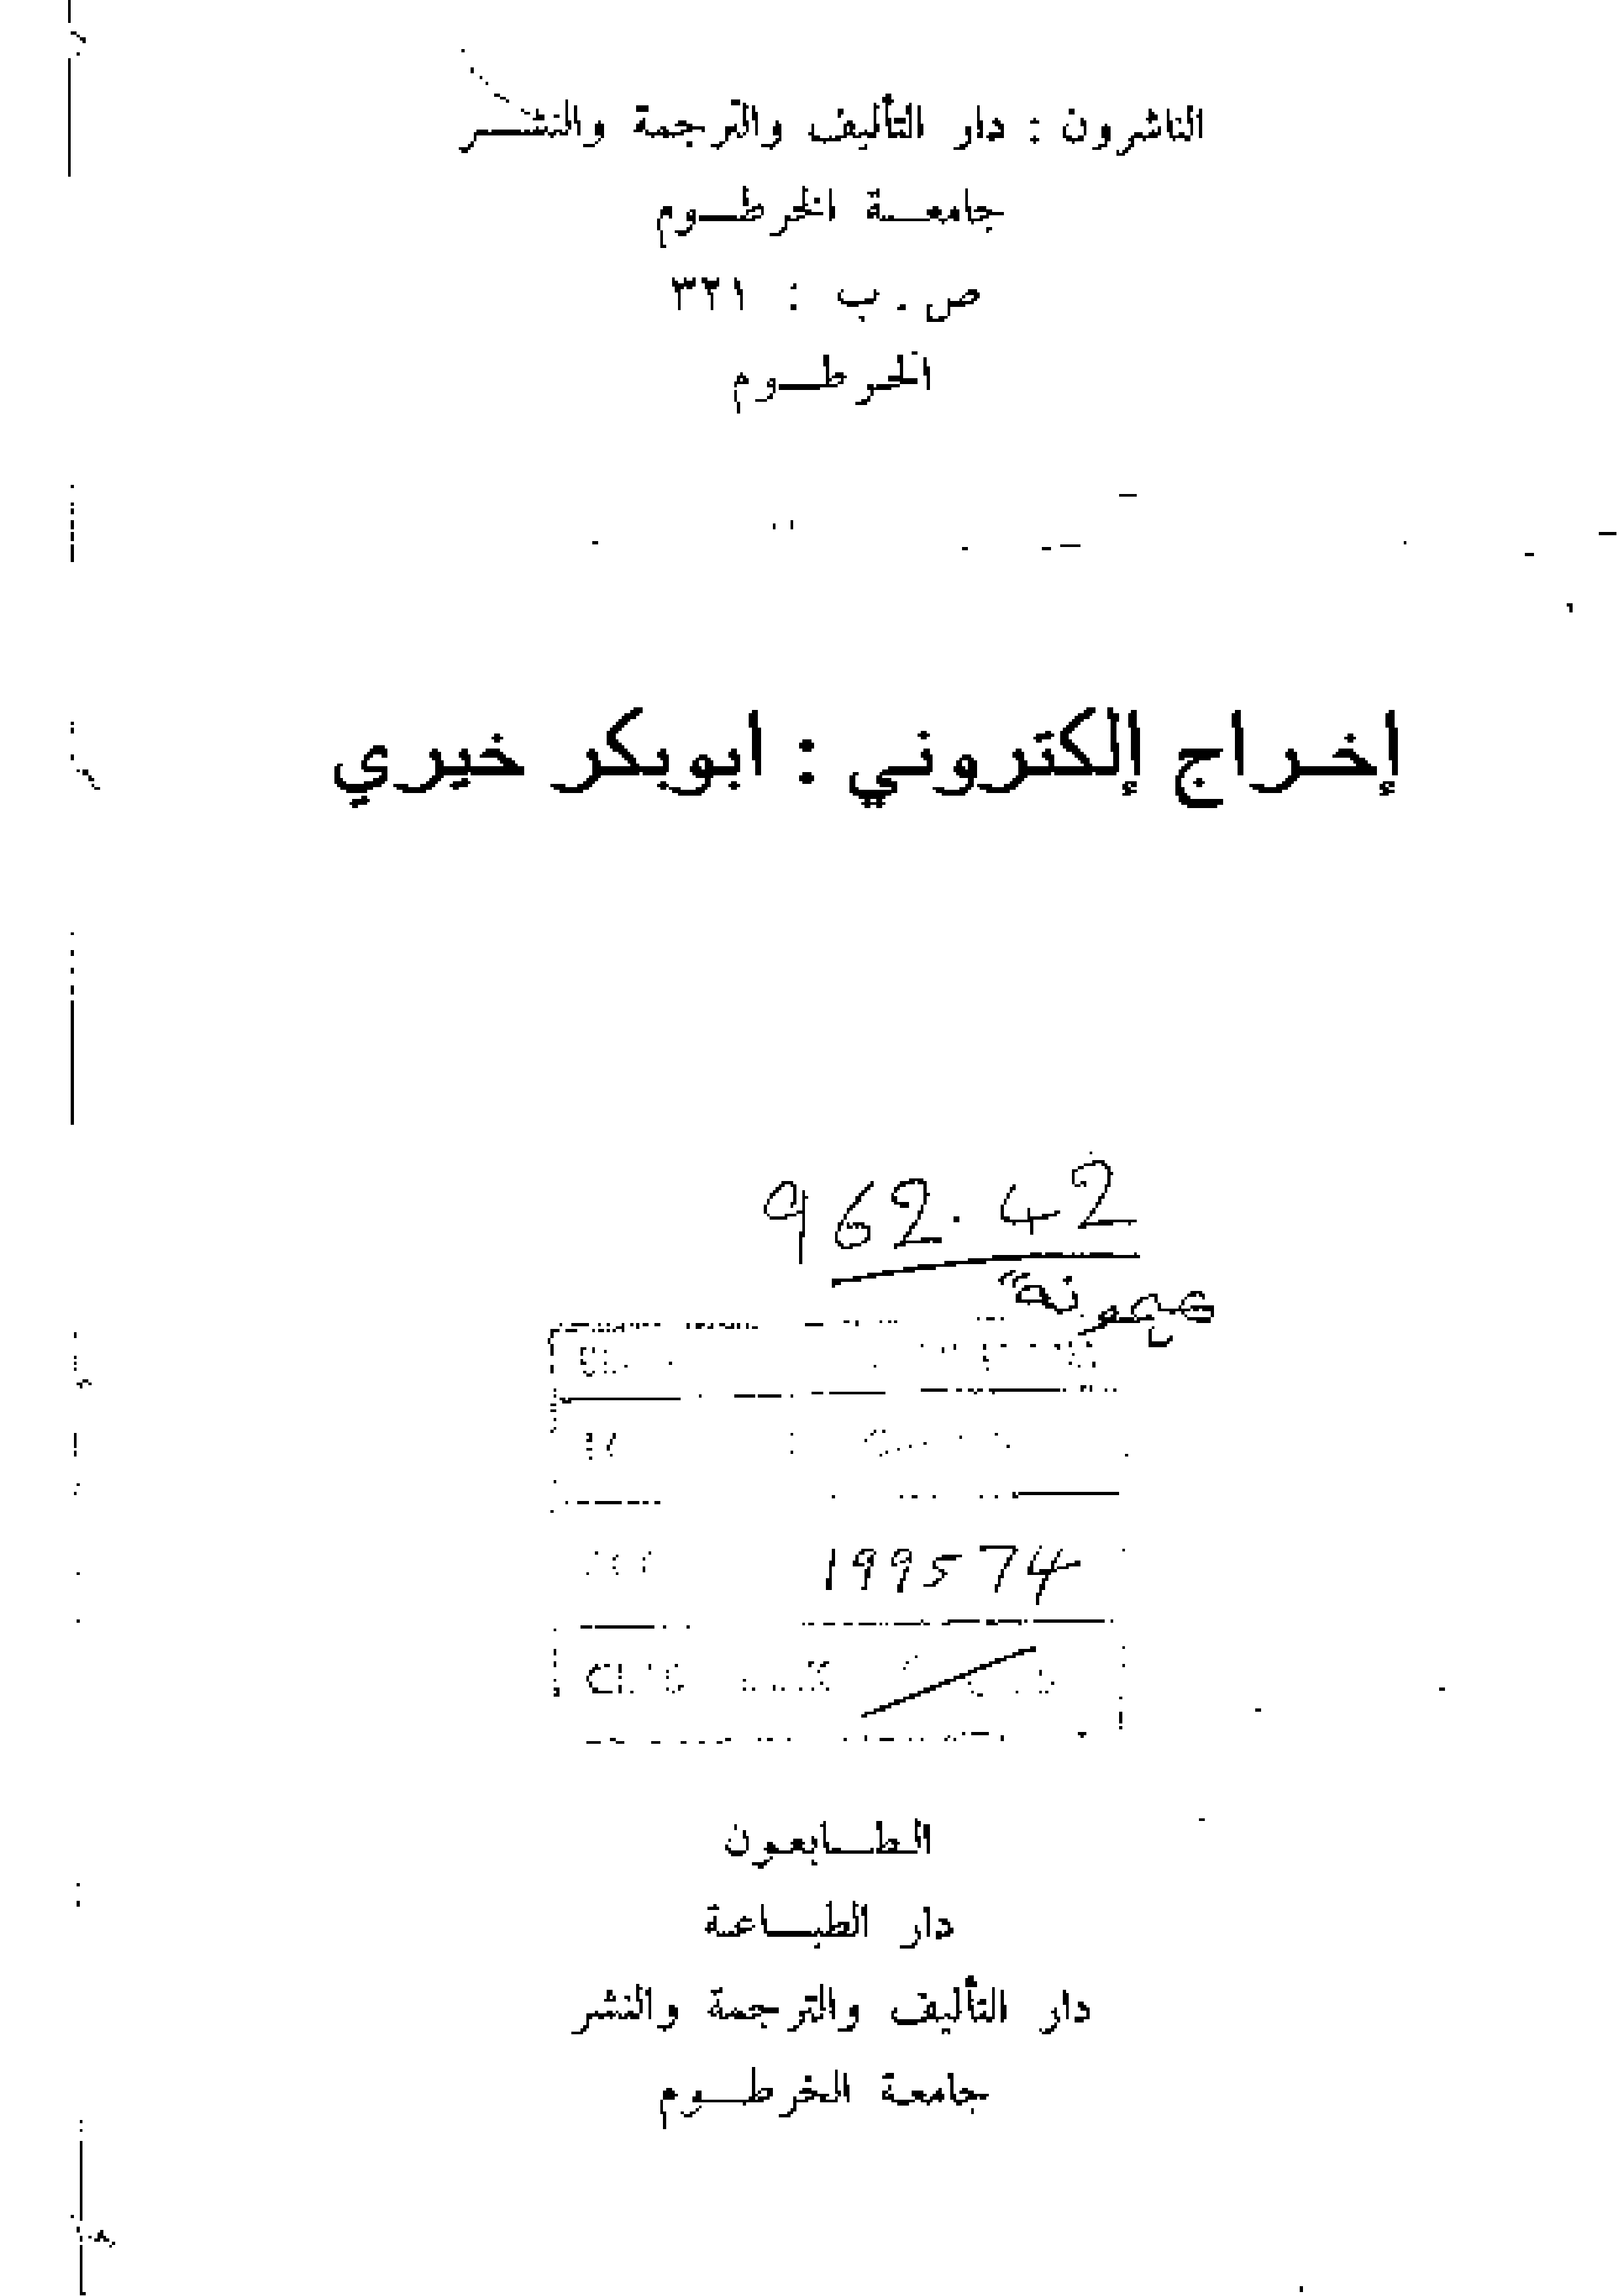 الناشرون : دار التأليف والترجمة والنشر
جامعة الخرطوم
ص . ب : ٣٢١
الخرطوم
إخراج إلكتروني : ابوبكر خيري
962.42
199574
الطابعون
دار الطباعة
دار التأليف والترجمة والنشر
جامعة الخرطوم